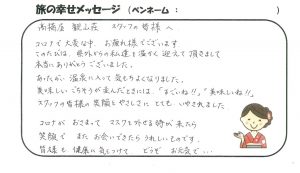 旅の幸せメッセージ (ペンネーム： )
高橋屋 観山荘 スタッフの皆様 へ
コロナで大変な中 お疲れ様でございます
このたびは、県外からの私達を温かく迎えて頂きまして
本当にありがとうございました。
あったかい温泉に入って気もちよくなりました。
美味しいごちそうが並んだときには、「すごいね!!」「美味しいね!!」
スタッフの皆様の笑顔とやさしさに とても いやされました。
コロナが おさまって マスクを外せる時が来たら
笑顔で また お会いできたらうれしいものです。
皆様も 健康に気をつけて どうぞ お元気で…